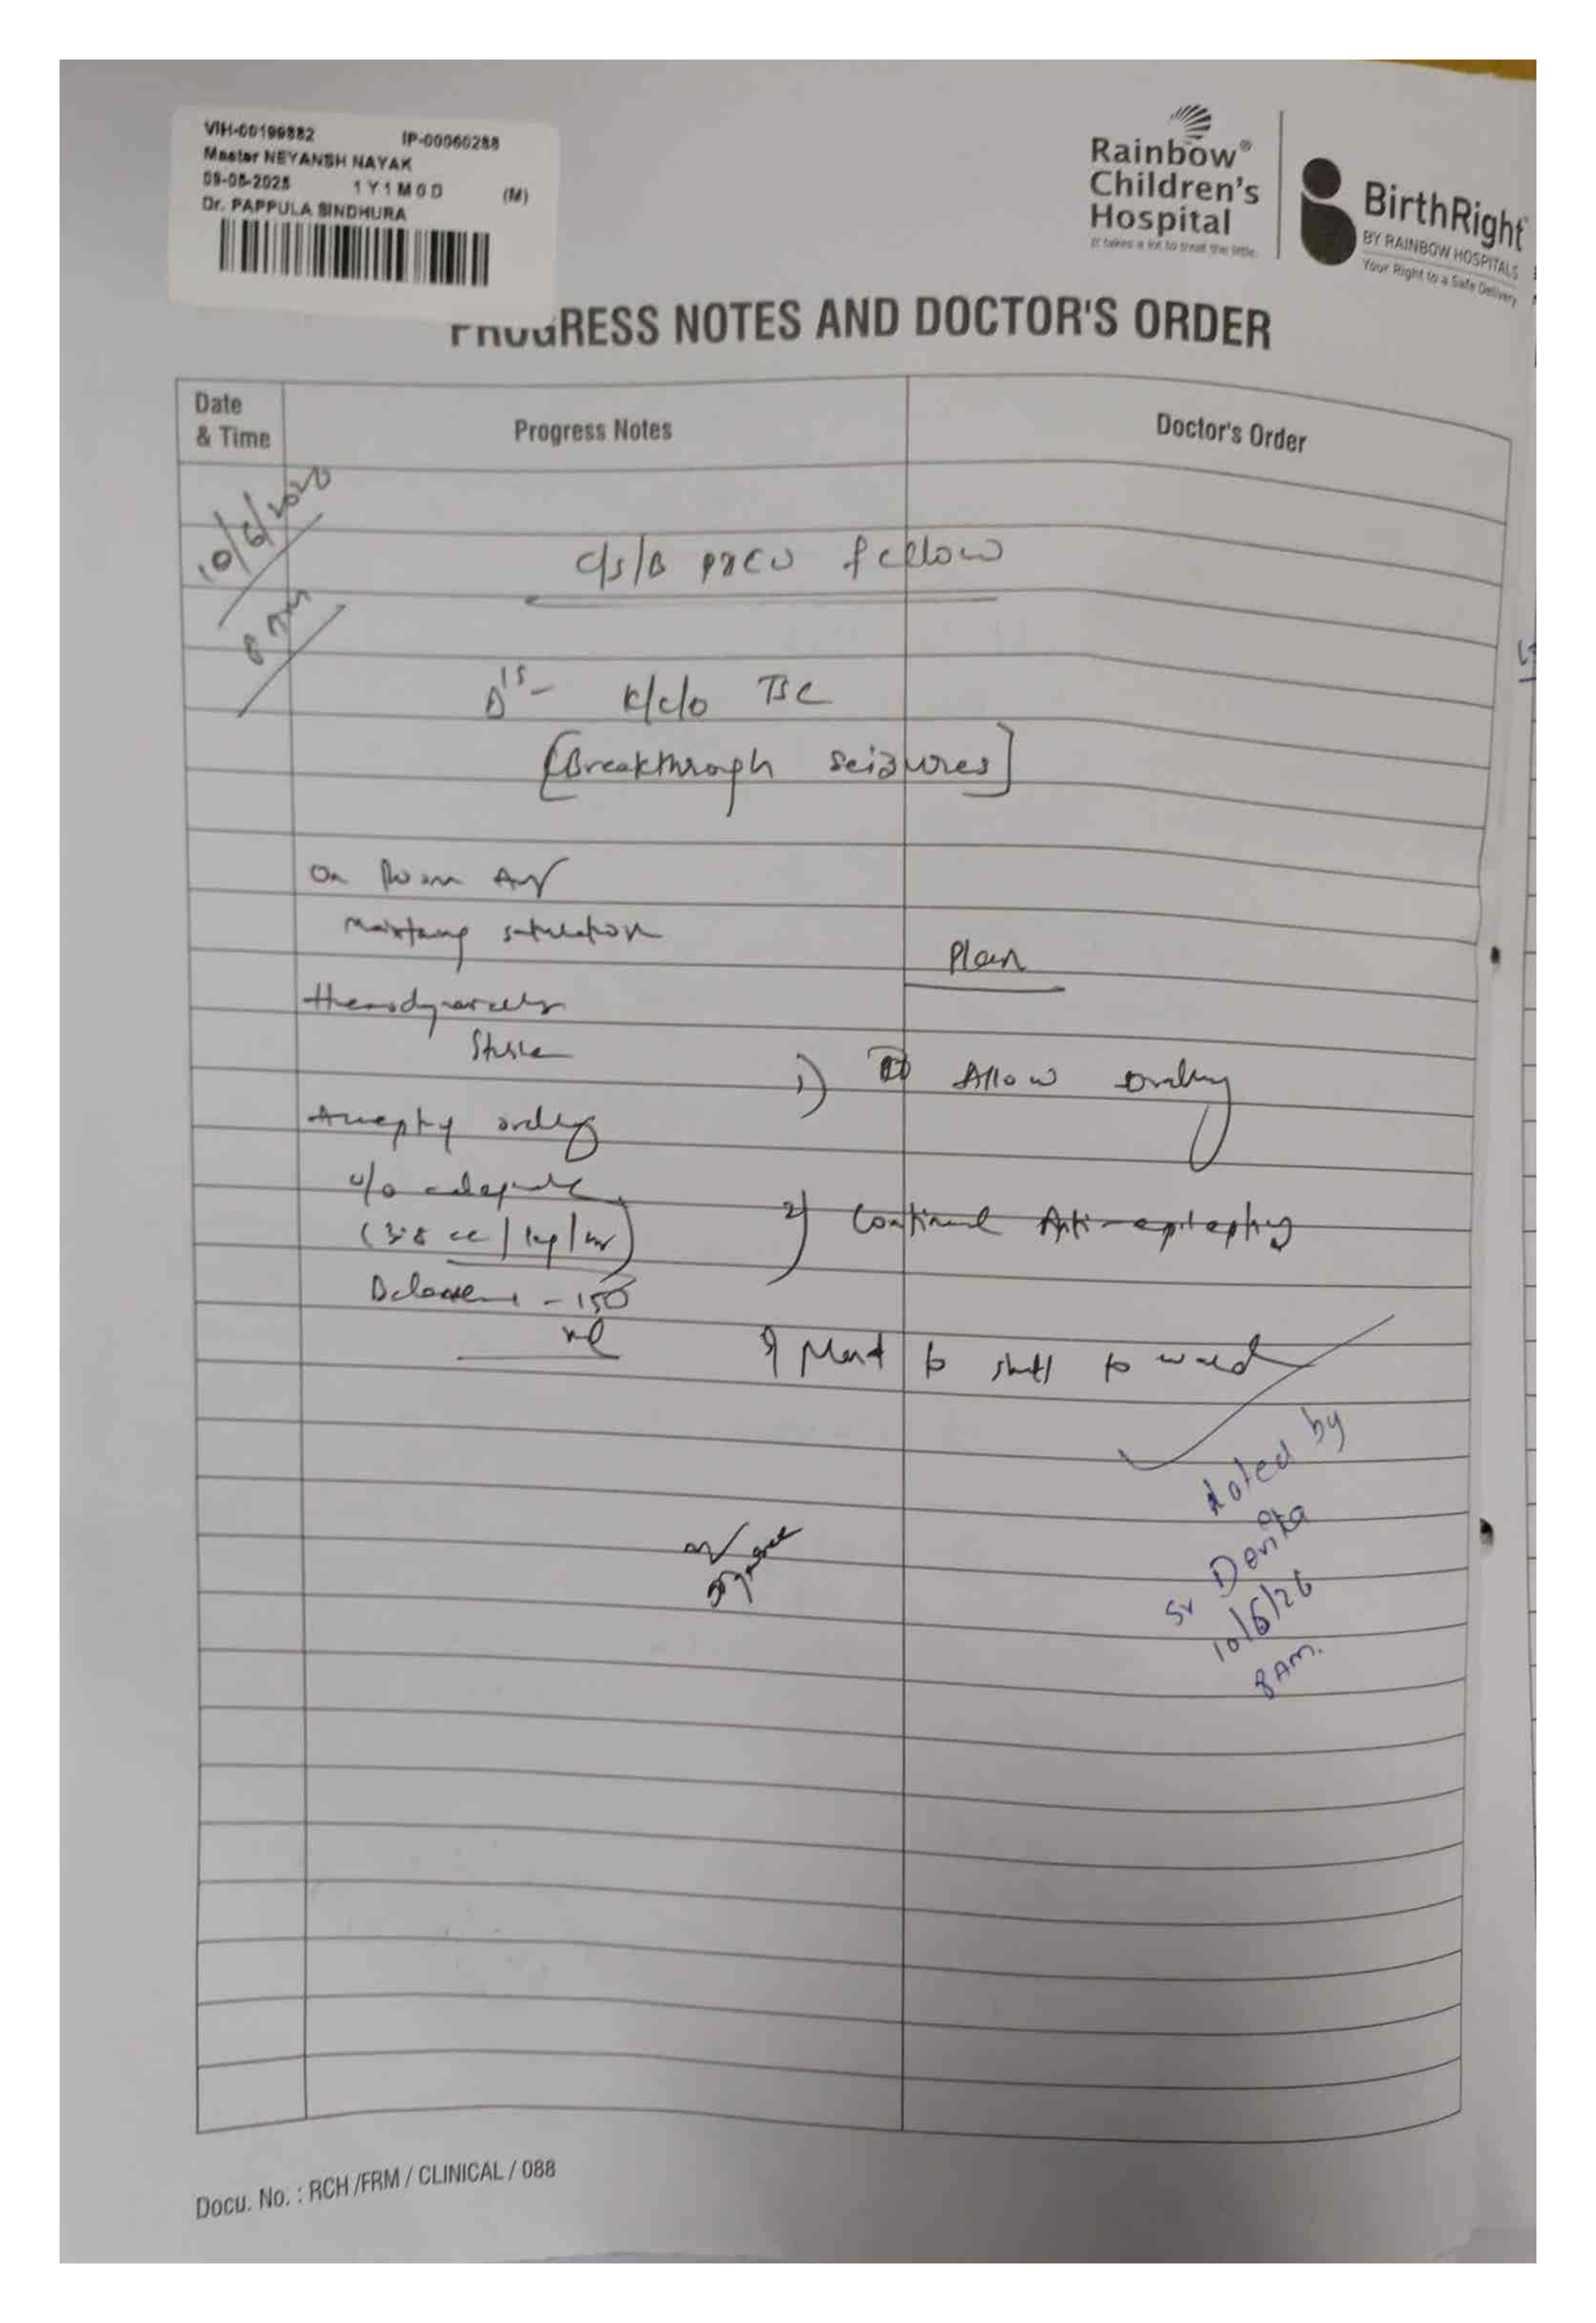 VIH-00199882 IP-00060288
Master NEYANSH NAYAK
09-05-2025 1Y1M0D (M)
Dr. PAPPULA SINDHURA
Rainbow®
Children's
Hospital
It takes a lot to treat the little.
BirthRight
BY RAINBOW HOSPITALS
Your Right to a Safe Delivery
PROGRESS NOTES AND DOCTOR'S ORDER
Date
& Time
Progress Notes
Doctor's Order
10/6/2020
8
c/s/b PICU fellow
Δis - k/c/o TSC
[Breakthrough seizures]
On Room Air
Maintaing saturation
Plan
Hemodynamically
Stable
1) Allow orally
Accepting orally
u/o adequate
(3.8 cc/kg/hr)
2) Continue Anti-epileptics
Balance + -150
ml
to shift to ward
Noted by
Sr Devika
10/6/26
8 Am.
Docu. No. : RCH /FRM / CLINICAL / 088